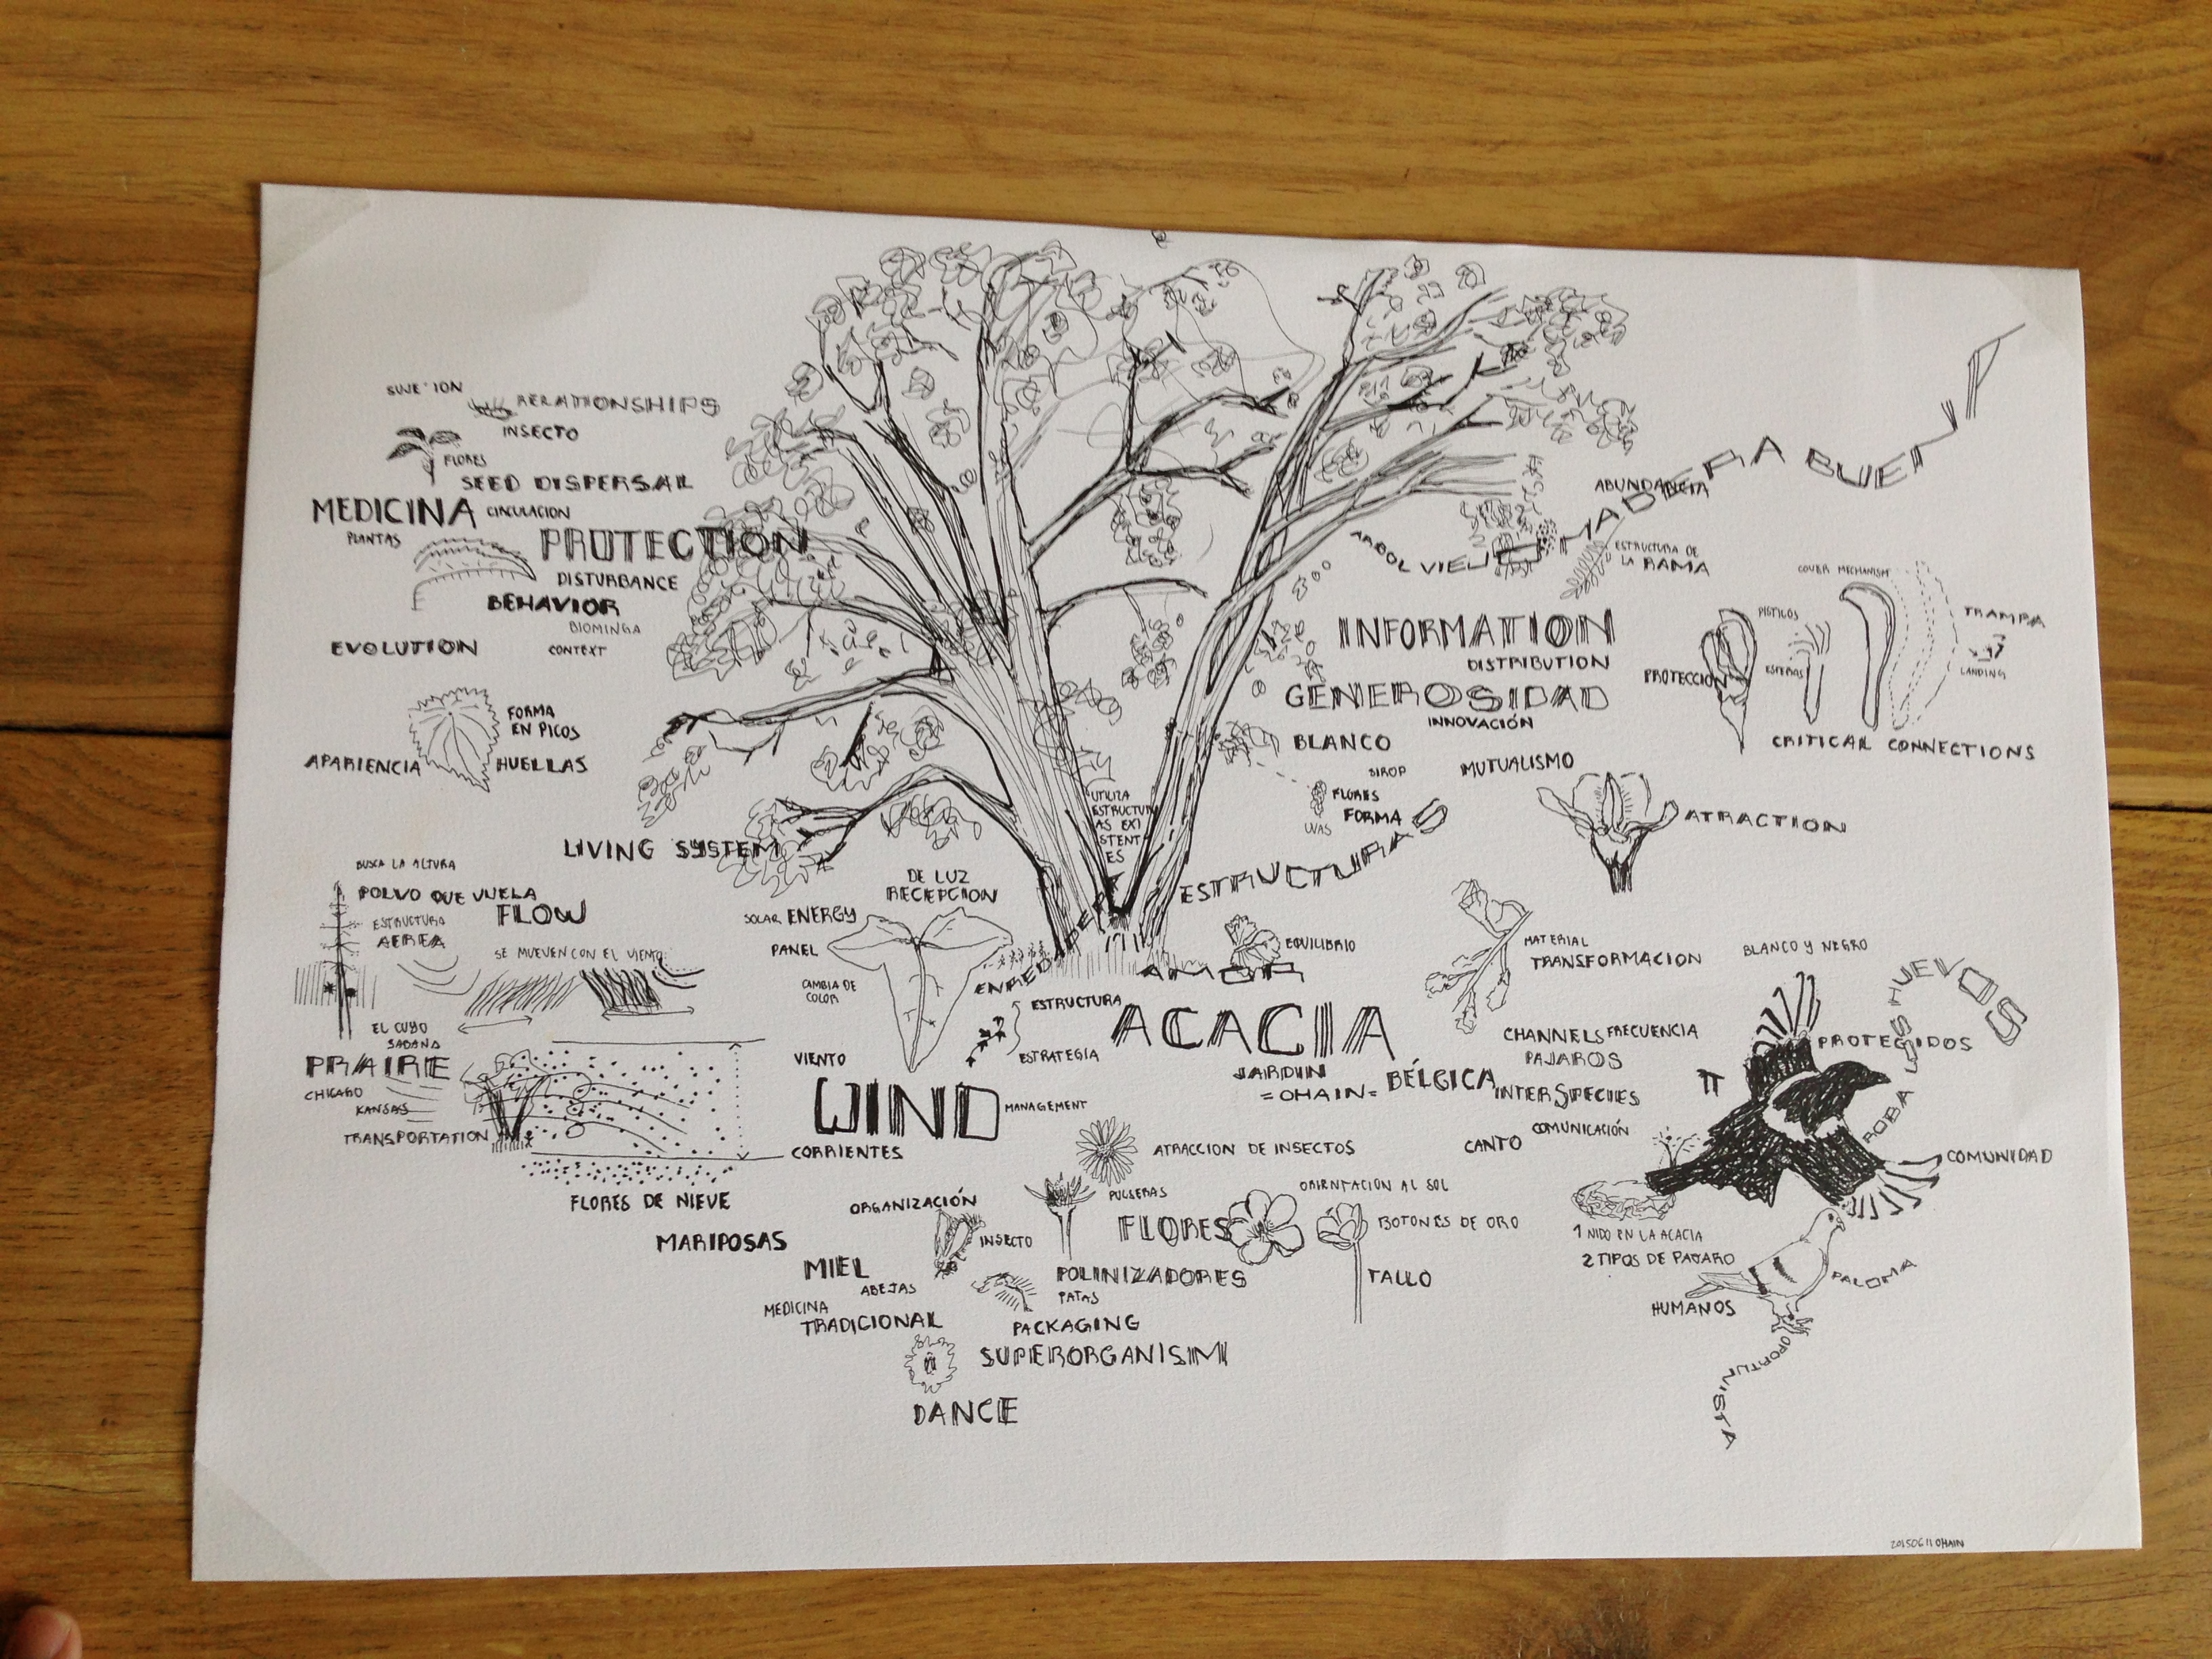 RELATIONSHIPS
INSECTO
FLORES
SEED DISPERSAL
MEDICINA CIRCULACION
PLANTAS
PROTECTION
DISTURBANCE
BEHAVIOR
BIOMINGA
EVOLUTION
CONTEXT
FORMA
EN PICOS
APARIENCIA
HUELLAS
LIVING SYSTEM
BUSCA LA ALTURA
POLVO QUE VUELA
FLOW
ESTRUCTURA
AEREA
SE MUEVEN CON EL VIENTO
SABANA
PRAIRIE
CHICAGO
KANSAS
TRANSPORTATION
FLORES DE NIEVE
MARIPOSAS
DE LUZ
RECEPCION
SOLAR ENERGY
PANEL
CAMBIA DE
COLOR
VIENTO
WIND MANAGEMENT
CORRIENTES
UTILIZA
ESTRUCTUR
AS EXI
STENT
ES
ESTRUCTURA
ESTRATEGIA
ARBOL VIEJO MADERA BUENA
ABUNDANCIA
ESTRUCTURA DE
LA RAMA
INFORMATION
DISTRIBUTION
GENEROSIDAD
INNOVACIÓN
BLANCO
SIROP
FLORES
FORMA
UVAS
ESTRUCTURAS
EQUILIBRIO
AMOR
ACACIA
JARDIN
=OHAIN= BÉLGICA
COVER MECHANISM
PISTILOS
TRAMPA
LANDING
PROTECCION
CRITICAL CONNECTIONS
MUTUALISMO
ATRACTION
MATERIAL
TRANSFORMACION
CHANNELS FRECUENCIA
PAJAROS
INTERSPECIES
COMUNICACIÓN
CANTO
BLANCO Y NEGRO
PROTEGIDOS
ROBA LOS HUEVOS
COMUNIDAD
1 NIDO EN LA ACACIA
2 TIPOS DE PAJARO
HUMANOS
PALOMA
OPORTUNISTA
ATRACCION DE INSECTOS
PULSERAS
ORIENTACION AL SOL
FLORES
BOTONES DE ORO
TALLO
ORGANIZACIÓN
INSECTO
MIEL
ABEJAS
POLINIZADORES
PATAS
MEDICINA
TRADICIONAL
PACKAGING
SUPERORGANISIM
DANCE
20150611 OHAIN